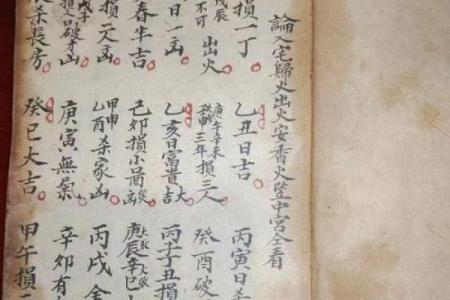 論入宅歸火出火安香火暨中宮全看
損一丁 乙丑日吉 丙寅日
戊辰不可出火 庚午辛未 三年損三人 癸酉破
日一凶 乙亥日富貴大吉 丙子丁丑損
春牛吉 己卯損小 庚辰辛巳 大敗 大敗
損一人凶 甲申乙酉殺家凶 丙戌
戊子 損破 庚寅無氣 辛卯有
長房 癸巳大吉 甲午損